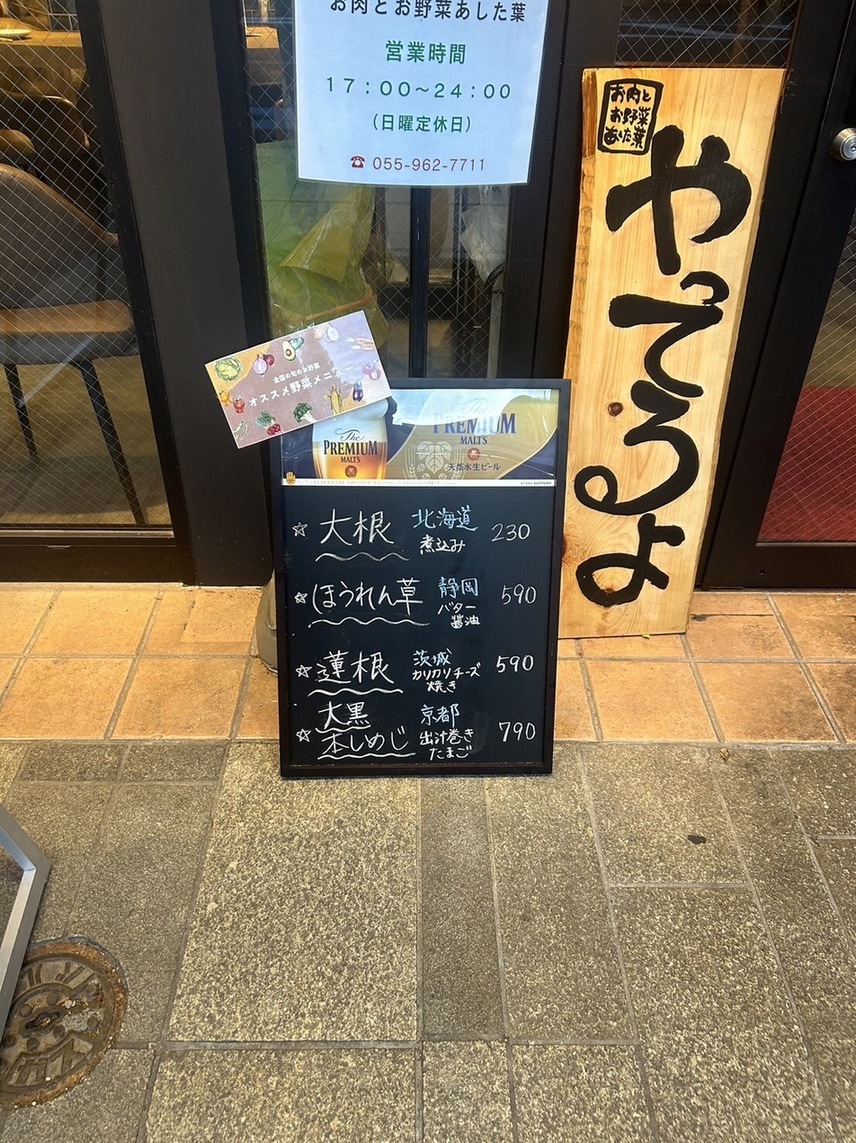 お肉とお野菜あした葉
営業時間
17:00~24:00
(日曜定休日)
☎ 055-962-7711
お肉と
お野菜
あした葉
やってるよ
全国の旬のお野菜
オススメ野菜メニュー
The
PREMIUM
MALT'S
The
PREMIUM
MALT'S
天然水生ビール
☆ 大根 北海道 煮込み 230
☆ ほうれん草 静岡 バター醤油 590
☆ 蓮根 茨城 カリカリチーズ焼き 590
☆ 大黒本しめじ 京都 出汁巻きたまご 790